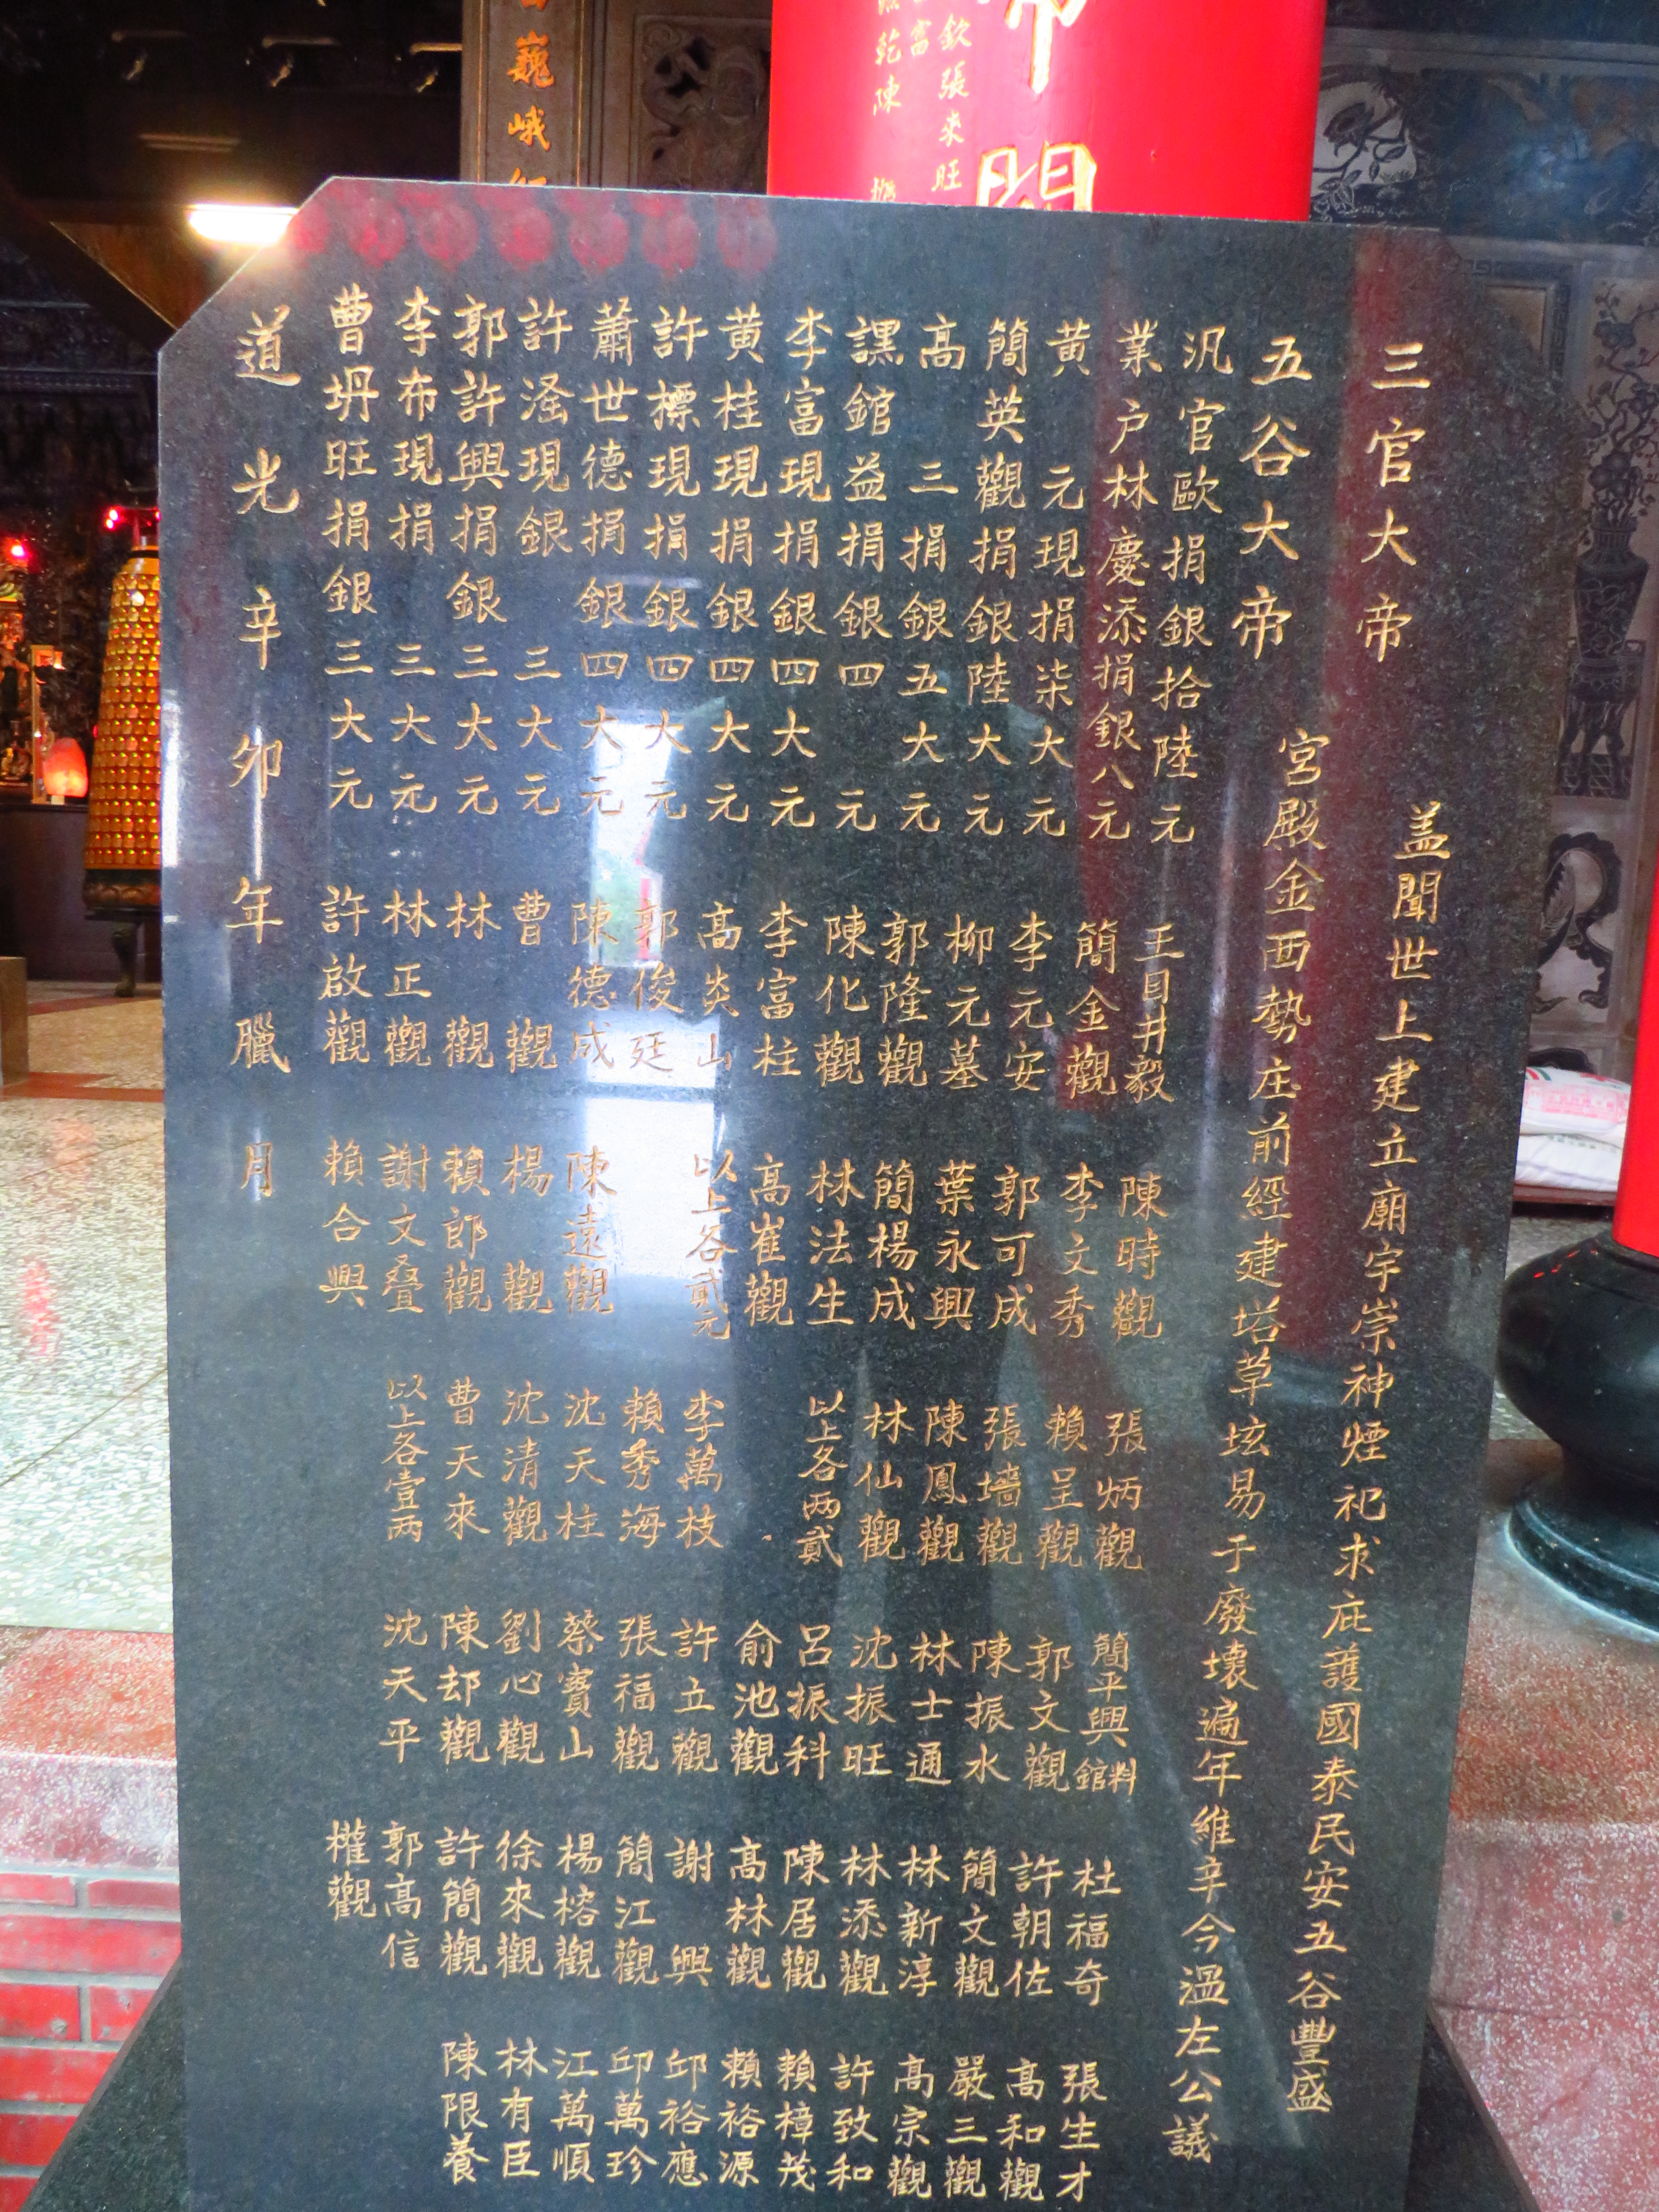 三官大帝
蓋聞世上建立廟宇崇神煙祀求庇護國泰民安五谷豐盛
五谷大帝
宮殿金西勢庄前經建塔草垓易于廢壞遍年維辛今溫左公議
汎官歐捐銀拾陸元
業户林慶添捐銀八元
黃元現捐柒大元
簡英觀捐銀陸大元
高三捐銀五大元
譆錧益捐銀四元
李富現捐銀四大元
黃桂現捐銀四大元
許標現捐銀四大元
蕭世德捐銀四大元
許漨現銀三大元
郭許興捐銀三大元
李布現捐三大元
曹坍旺捐銀三大元
王目井毅
簡金觀
李元安
柳元墓
郭隆觀
陳化觀
李富柱
高炎山
郭俊廷
陳德成
曹觀
林觀
林正觀
許啟觀
陳時觀
李文秀
郭可成
葉永興
簡楊成
林法生
高崔觀
以上各貳元
陳遠觀
楊觀
賴郎觀
謝文叠
賴合興
張炳觀
賴呈觀
張墻觀
陳鳳觀
林仙觀
以上各两貳
李萬枝
賴秀海
沈天柱
沈清觀
曹天來
以上各壹两
簡平興料錧
郭文觀
陳振水
林士通
沈振旺
呂振科
俞池觀
許立觀
張福觀
蔡寶山
劉心觀
陳却觀
沈天平
杜福奇
許朝佐
簡文觀
林新淳
林添觀
陳居觀
高林觀
謝興
簡江觀
楊榕觀
徐來觀
許簡觀
郭高信
權觀
張生才
高和觀
嚴三觀
高宗觀
許致和
賴樟茂
賴裕源
邱裕應
邱萬珍
江萬順
林有臣
陳限養
道光辛卯年臘月
帝
欽張來旺
富
乾陳
巍峨